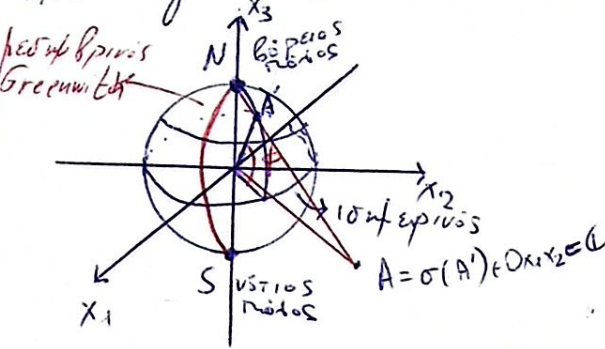 x₃
μεσημβρινός
Greenwich
N βόρειος
πόλος
A'
x₂
ισημερινός
A = σ(A') ∈ Ox₁x₂ =
S νότιος
πόλος
x₁